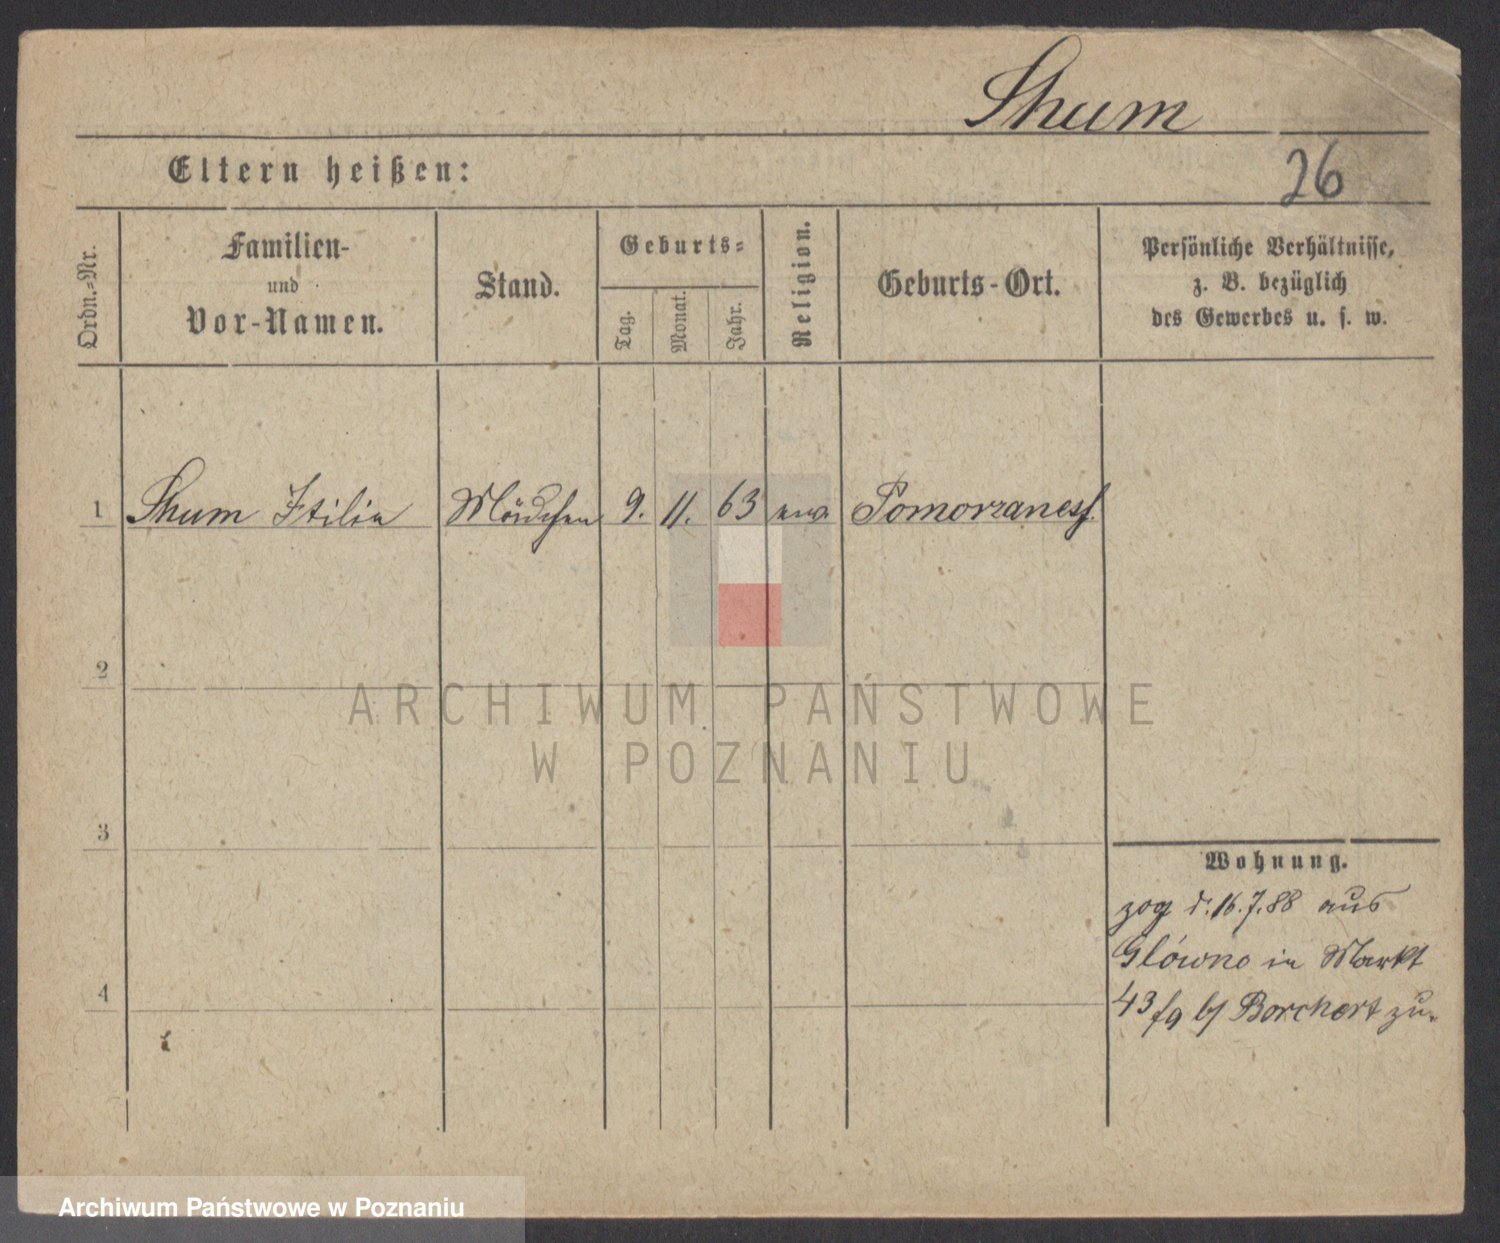 Shum
Eltern heißen:
26
Ordn.-Nr.
Familien-
und
Vor-Namen.
Stand.
Geburts-
Tag.
Monat.
Jahr.
Religion.
Geburts-Ort.
Persönliche Verhältnisse,
z. B. bezüglich
des Gewerbes u. s. w.
1 Shum Ottilie Mädchen 9. 11. 63 ev.
2
ARCHIWUM PAŃSTWOWE
W POZNANIU
3
Wohnung.
zog d. 16.7.88 aus
Główno in Markt
4
43 b/ Borchert zu.
Archiwum Państwowe w Poznaniu